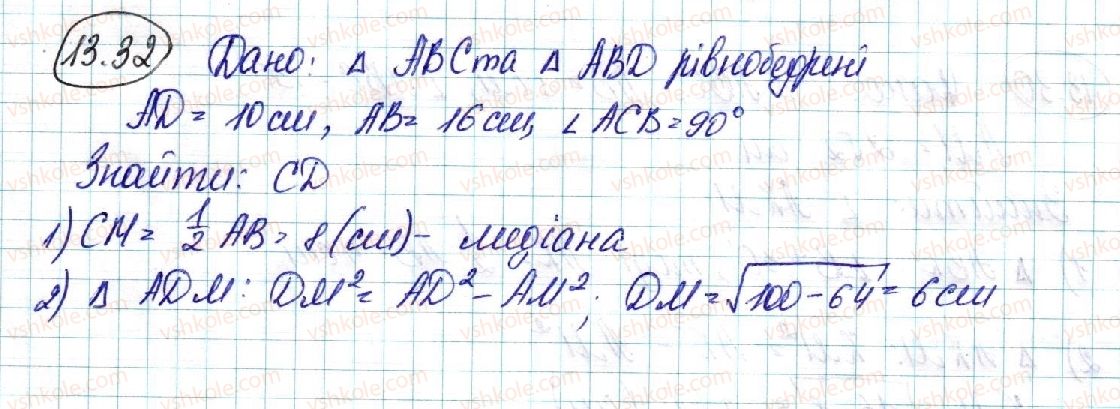 13.32 Дано: △ ABC та △ ABD рівнобедрені
AD = 10 см, AB = 16 см, ∠ ACB = 90°
Знайти: CD
1) CM = 1/2 AB = 8 (см) - медіана
2) △ ADM: DM² = AD² - AM²; DM = √100 - 64 = 6 см